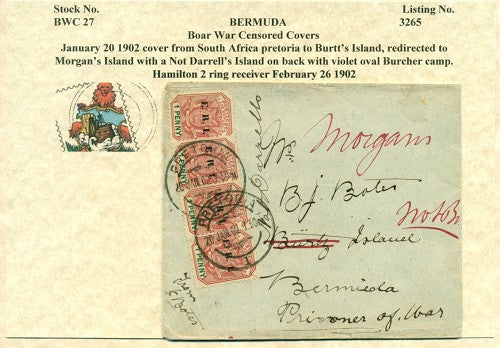 Stock No.
BERMUDA
Listing No.
BWC 27
3265
Boar War Censored Covers
January 20 1902 cover from South Africa pretoria to Burtt's Island, redirected to
Morgan's Island with a Not Darrell's Island on back with violet oval Burcher camp.
Hamilton 2 ring receiver February 26 1902
1 PENNY
E.R.I.
E.R.I.
E.R.I.
1 PENNY
E.R.I.
1 PENNY
PRETORIA
20 JAN 02
Morgans
BJ Botes
Not Bu
Burtz Island
Bermuda
Prisoner of War
From
E Botes